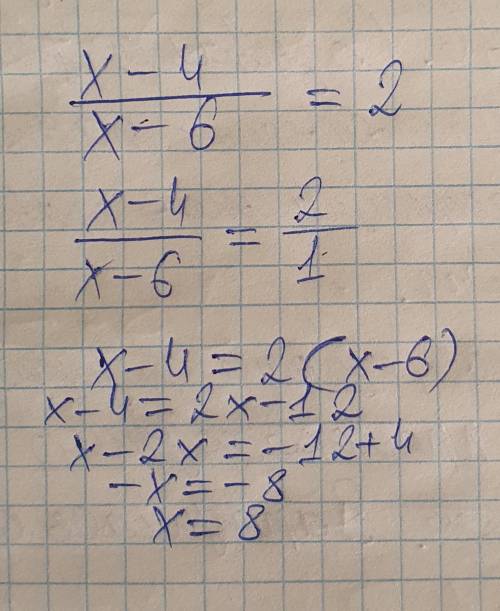 x-4/x-6 = 2
x-4/x-6 = 2/1
x-4=2(x-6)
x-4=2x-12
x-2x=-12+4
-x=-8
x=8